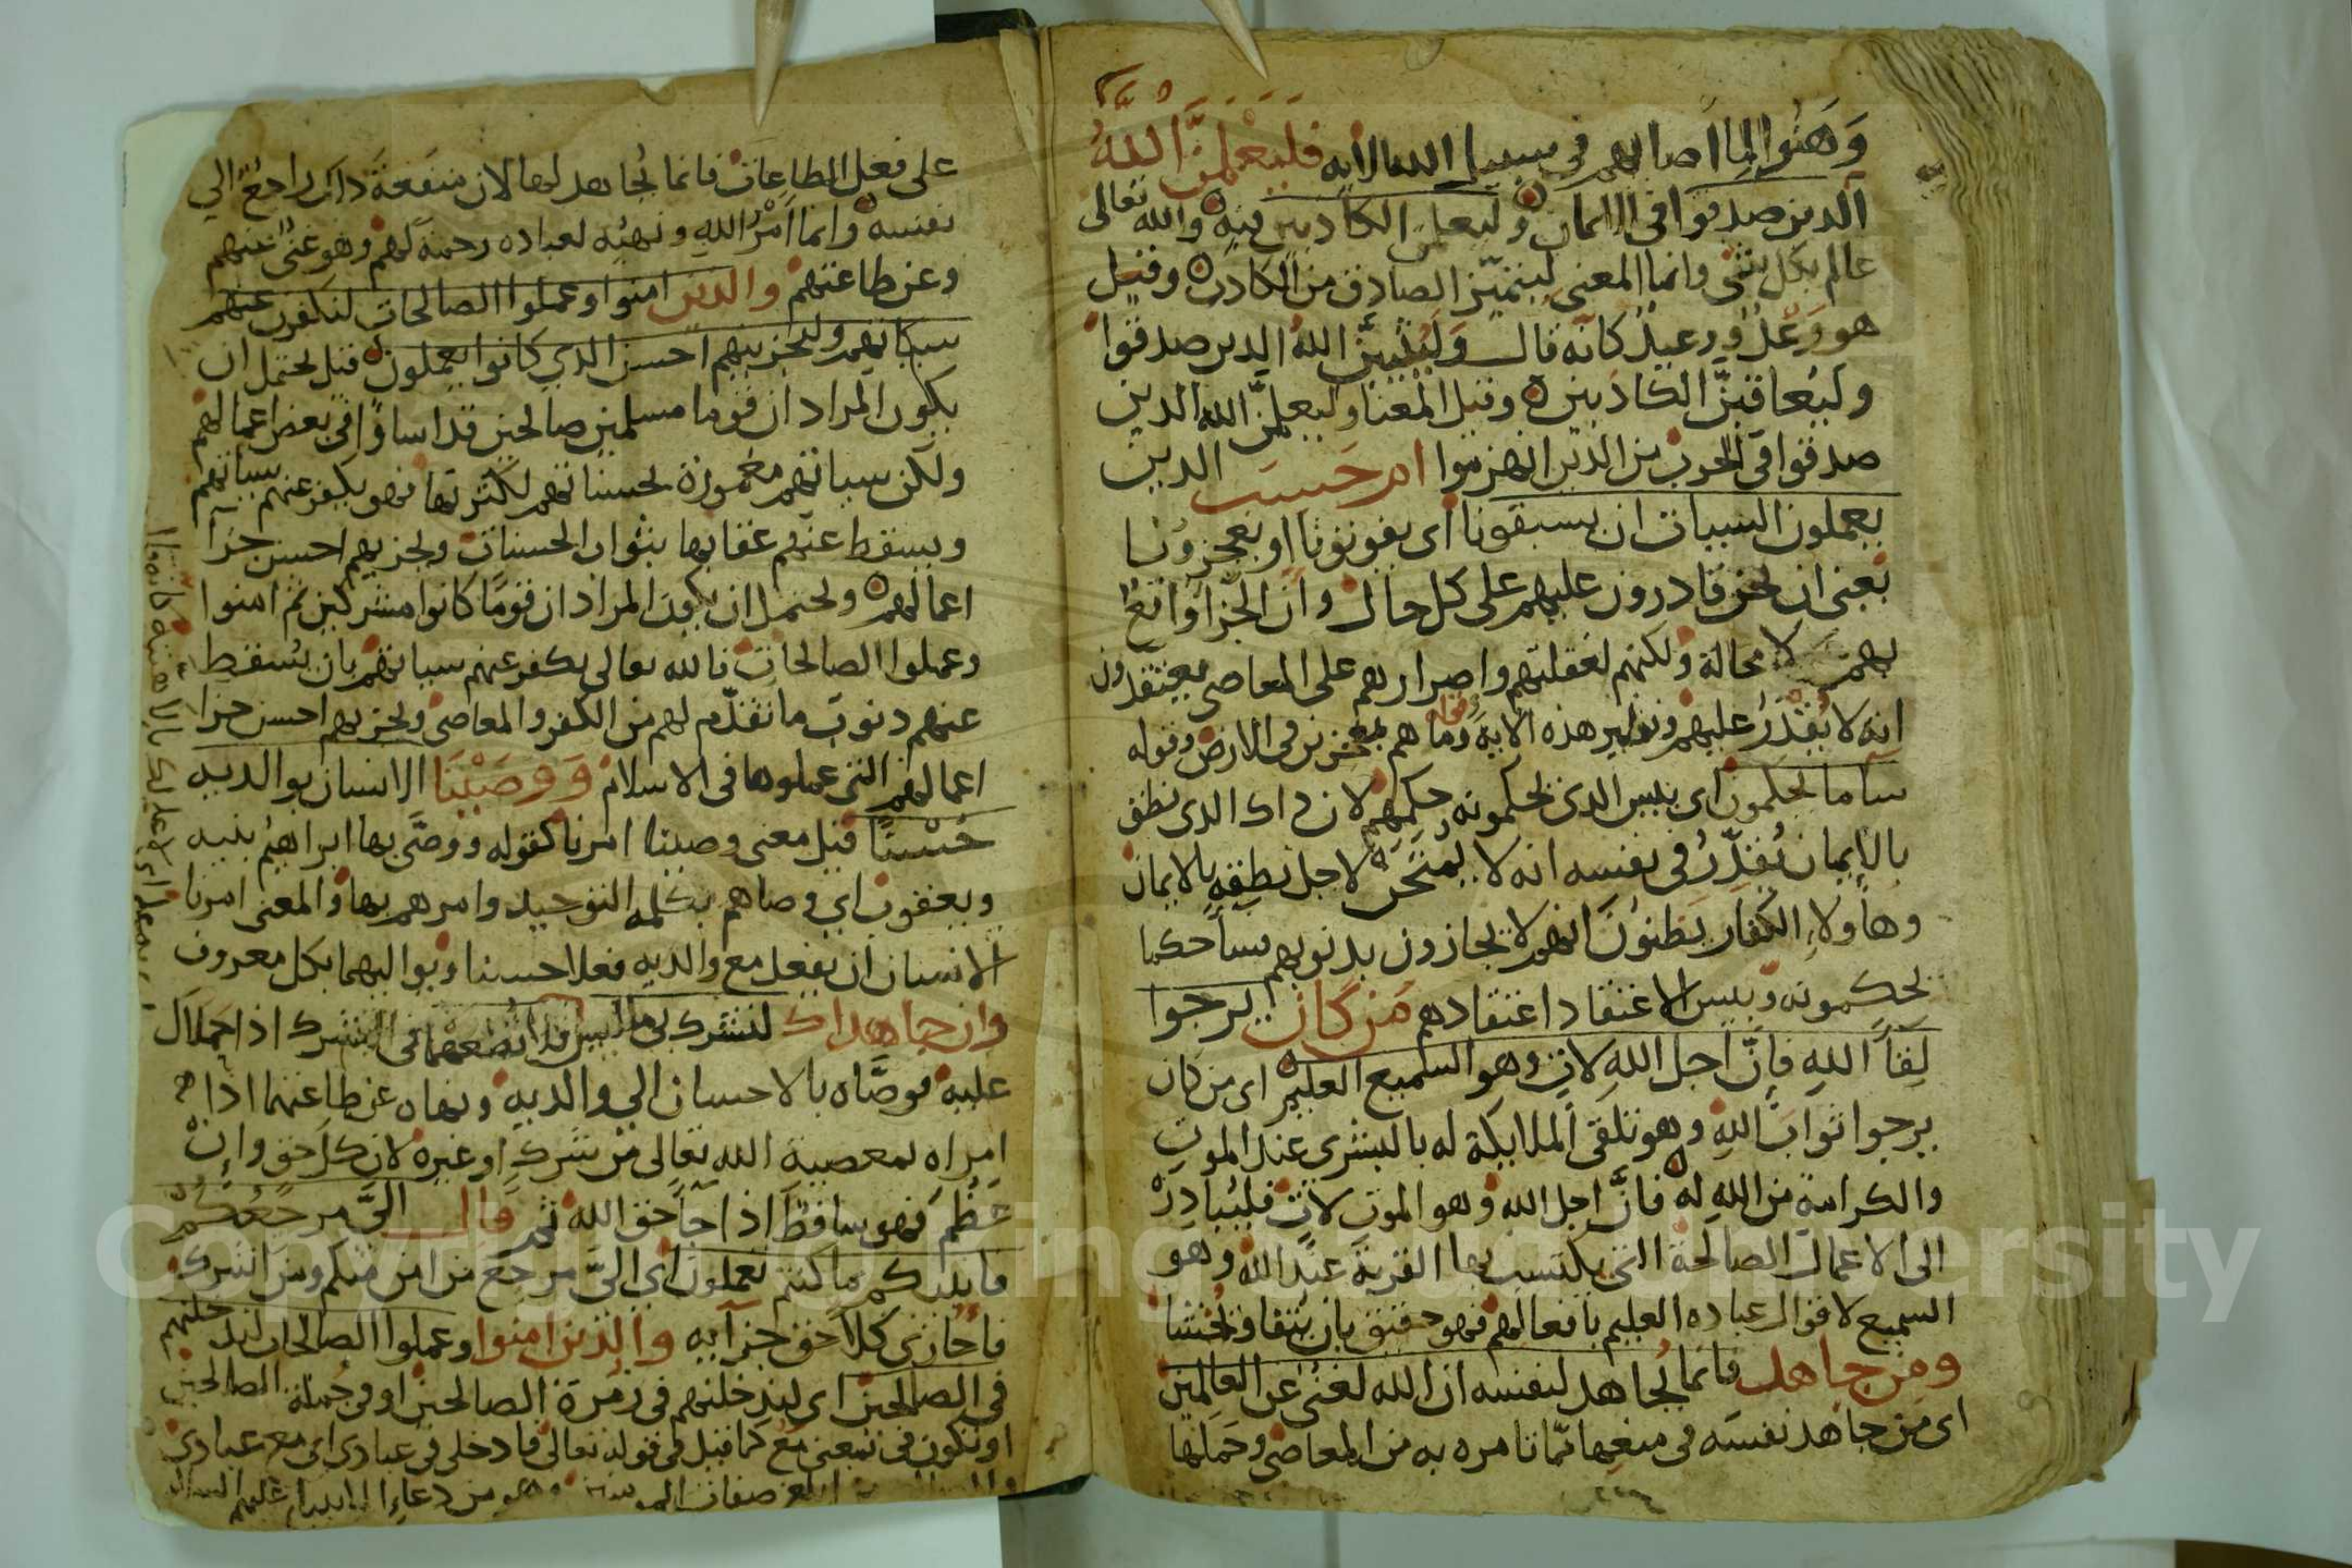 وَهَنُوا لِما اصابهم في سبيل الله الايه فَلَيَعْلَمَنَّ اللَّهُ
الذين صدقوا في الايمان وليعلمن الكاذبين فيه والله تعالى
عالم بكل شي وانما المعنى ليتميّز الصادق من الكاذب وقيل
هو وَعْدٌ ووعيدٌ كانه قال وَلَيُثيبَنَّ اللهُ الذين صدقوا
وليُعاقبَنَّ الكاذبين وقيل المعنا وليعلمنَّ الله الذين
صدقوا في الحرب من الذين انهزموا ام حَسِبَ الذين
يعملون السيات ان يسبقونا اى يفوتونا او يعجزونا
يعنى ان نحن قادرون عليهم على كل حال وانّ الجزآ واقعٌ
بهم لا محالة ولكنهم لغفلتهم واصرارهم على المعاصى يعتقدون
انه لا يُقْدَرُ عليهم ونظير هذه الايه وما هم بمعجزين في الارض وقوله
سآ ما يحكمون اى بيس الذى يحكمونه حكمهم لان ذاك الذى نطق
بالإيمان يُقدِّرُ في نفسه انه لا يُمتَحَن لاجل نطقِهِ بالايمان
وهاولاءِ الكفار يظنون انهم لا يجازون بذنوبهم سآ حكما
يحكمونه وبيس الاعتقاد اعتقادهم مَن كان يرجوا
لِقآ اللهِ فإنَّ اجل اللهِ لاتٍ وهو السميع العليم اى من كان
يرجوا ثوابَ اللهِ وهو تلقى الملايكة له بالبشرى عند الموت
والكرامة من اللهِ له فانَّ اجل الله وهو الموت لاتٍ فليُبادِرْ
الى الاعمال الصالحة التى يكتسب بها القربة عند الله وهو
السميع لاقوال عباده العليم بافعالهم فهو حقيق بان يُتقا ويُخشا
ومن جاهد فانما يُجاهد لنفسه ان الله لغنىٌ عن العالمين
اى من جاهد نفسَه في منعِها ممّا تامره به من المعاصى وحَمَلَها
على فعل الطاعات فانما يُجاهد لها لان منفعةَ ذاك راجعٌ الي
نفسه وانما أَمْرُ اللهِ ونهيُه لعباده رحمة لهم وهو غنىٌ عنهم
وعن طاعتهم والذين امنوا وعملوا الصالحات لنكفرن عنهم
سياتهم ولنجزينهم احسن الذي كانوا يعملون قيل يحتمل ان
يكون المراد ان قوما مسلمين صالحين قد اساؤا في بعض اعمالهم
ولكن سياتهم مغمورة بحسناتهم لكثرتها فهو يكفر عنهم سياتهم
ويسقط عنهم عقابها بثواب الحسنات ويجزيهم احسن جزآ
اعمالهم ويحتمل ان يكون المراد ان قومًا كانوا مشركين ثم امنوا
وعملوا الصالحات فالله تعالى يكفر عنهم سياتهم بان يُسقط
عنهم ذنوب ما تقدّم لهم من الكفر والمعاصى ويجزيهم احسن جزا
اعمالهم التى عملوها في الاسلام وَوَصَّيْنَا الانسان بوالديه
حُسْنًا قيل معنى وصينا امرنا كقوله ووصَّى بها ابراهيمُ بنيه
ويعقوب اي وصاهم بكلمه التوحيد وامرهم بها والمعنى امرنا
الانسان ان يفعل مع والديه فعلا حسنا وبرا اليهما بكل معروف
وان جاهداك لتشرك بى ما ليس فلا تُطعْهما في الشرك اذا حَمَلاك
عليه فوصَّاه بالاحسان الي والديه ونهاه عن طاعتهما اذا
امراه بمعصية الله تعالى من شرك او غيره لان كل حق وإنْ
عَظُمَ فهو ساقط اذا جآ حق الله ثم قال اليَّ مرجعُكم
فانبئكم بما كنتم تعملون اى اليَّ مرجع من امن منكم ومن اشرك
فاُجازى كلاً حق جزآيه والذين امنوا وعملوا الصالحات لندخلنهم
في الصالحين اى لندخلنهم في زمرة الصالحين او في جملة الصالحين
او تكون في بمعنى مع كما قيل في قوله تعالى فادخلى في عبادى اى مع عبادى
ابلغ صفات وهو من دعاء عليهم السلام
Copyright © King Saud University